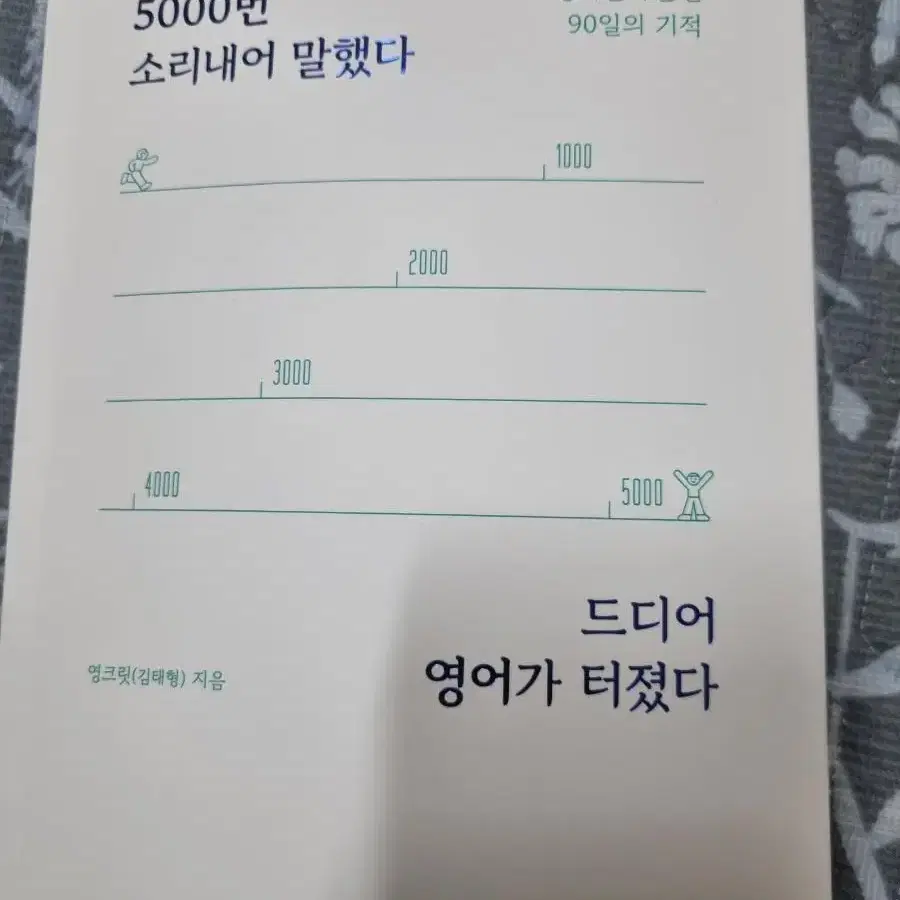 5000번
소리내어 말했다
90일의 기적
1000
2000
3000
4000
5000
드디어
영어가 터졌다
영크릿(김태형) 지음